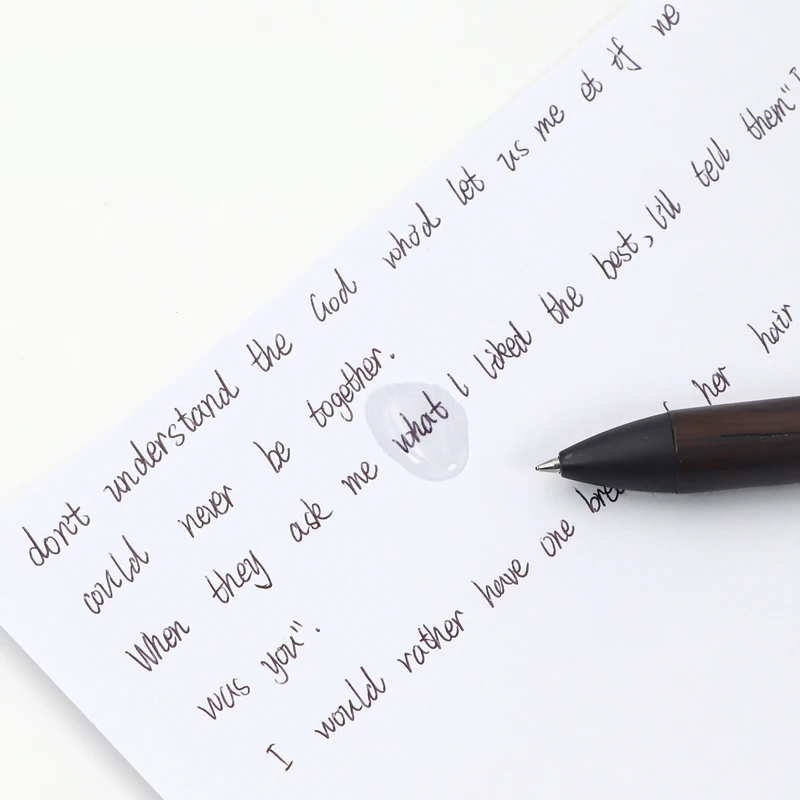 don't understand the God who'd let us me et if we
could never be together.
When they ask me what I liked the best, I'll tell them" I
was you".
I would rather have one her hair